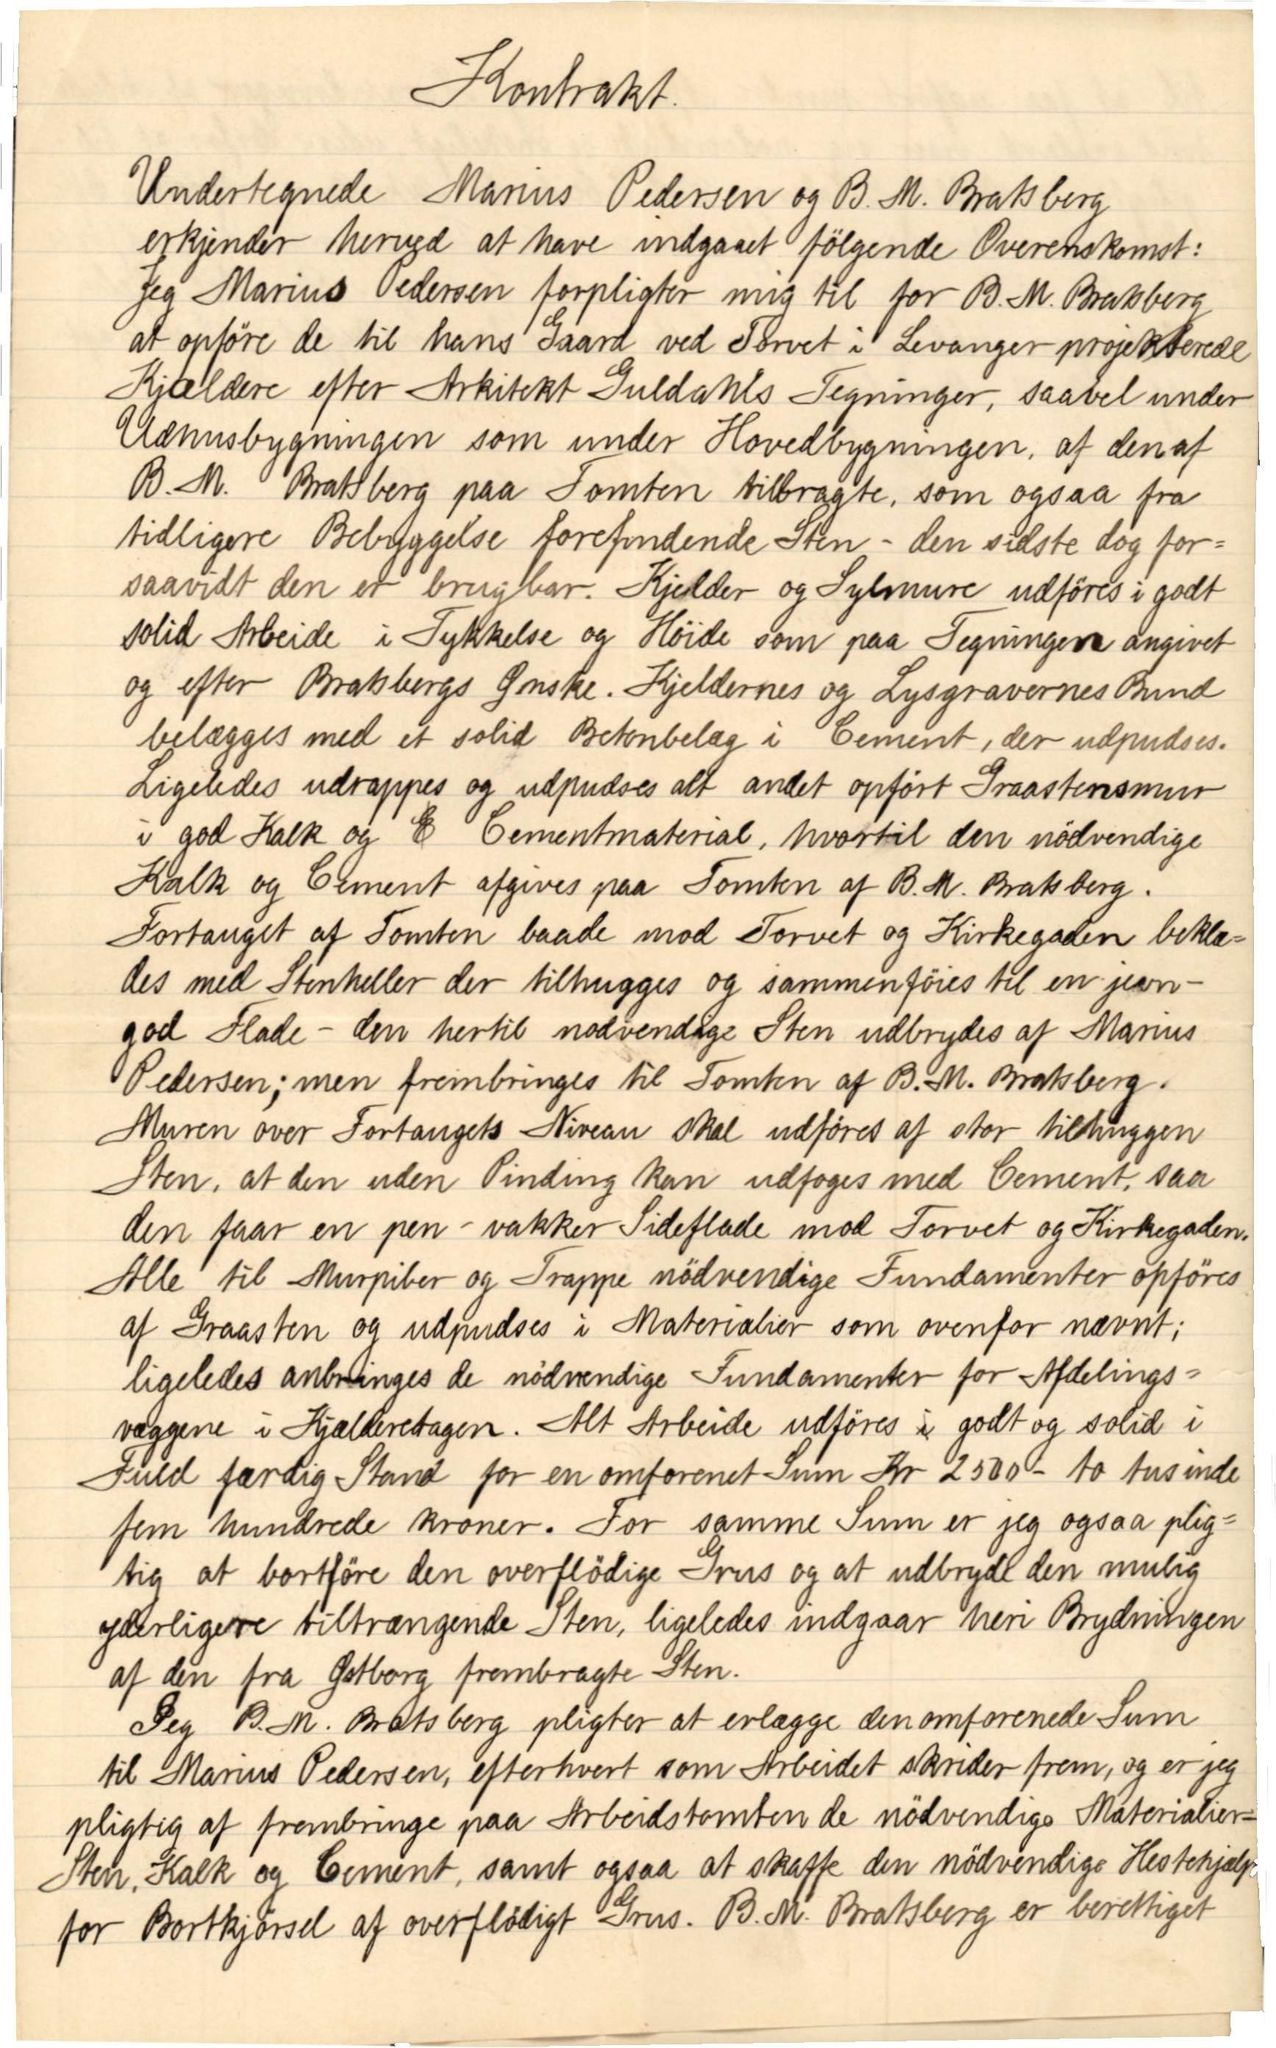 Kontrakt.
Undertegnede Marius Pedersen og B. M. Bratsberg
erkjender herved at have indgaaet følgende Overenskomst:
Jeg Marius Pedersen forpligter mig til for B. M. Bratsberg
at opføre de til hans Gaard ved Torvet i Levanger projekterede
Kjældere efter Arkitekt Guldahls Tegninger, saavel under
Udhusbygningen som under Hovedbygningen, af den af
B. M. Bratsberg paa Tomten tilbragte, som ogsaa fra
tidligere Bebyggelse forefindende Sten - den sidste dog for=
saavidt den er brugbar. Kjelder og Sylmure udføres i godt
solid Arbeide i Tykkelse og Høide som paa Tegningen angivet
og efter Bratsbergs Ønske. Kjeldernes og Lysgravernes Bund
belægges med et solid Betonbelæg i Cement, der udpudses.
Ligeledes udrappes og udpudses alt andet opført Graastensmur
i god Kalk og C Cementmaterial, hvortil den nödvendige
Kalk og Cement afgives paa Tomten af B. M. Bratsberg.
Fortauget af Tomten baade mod Torvet og Kirkegaden beklæ=
des med Stenheller der tilhugges og sammenføies til en jevn-
god Flade - den hertil nodvendige Sten udbrydes af Marius
Pedersen; men frembringes til Tomten af B. M. Bratsberg.
Muren over Fortaugets Niveau skal udføres af stor tilhuggen
Sten, at den uden Pinding kan udfoges med Cement, saa
den faar en pen - vakker Sideflade mod Torvet og Kirkegaden.
Alle til Murpiber og Trappe nödvendige Fundamenter opföres
af Graasten og udpudses i Materialier som ovenfor nævnt;
ligeledes anbringes de nödvendige Fundamenter for Afdelings=
væggene i Kjælderetagen. Alt Arbeide udföres i godt og solid i
Fuld færdig Stand for en omforenet Sum Kr 2500- to tusinde
fem hundrede kroner. For samme Sum er jeg ogsaa plig=
tig at bortföre den overflödige Grus og at udbryde den mulig
yderligere tiltrængende Sten, ligeledes indgaar heri Brydningen
af den fra Østborg frembragte Sten.
Jeg B. M. Bratsberg pligter at erlægge den omforenede Sum
til Marius Pedersen, efterhvert som Arbeidet skrider frem, og er jeg
pligtig af frembringe paa Arbeidstomten de nödvendige Materialier=
Sten, Kalk og Cement, samt ogsaa at skaffe den nödvendige Hestehjælp
for Bortkjörsel af overflödigt Grus. B. M. Bratsberg er berettiget